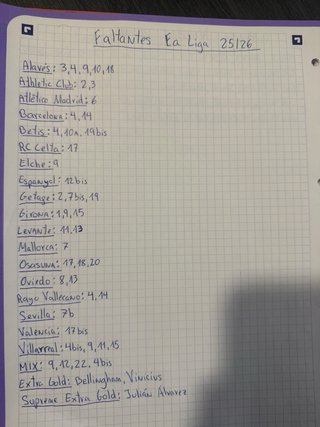 Faltantes Ea Liga 25/26
Alavés: 3,4,9,10,18
Athletic Club: 2,3
Atlético Madrid: 6
Barcelona: 4,14
Betis: 4,10a,19bis
RC Celta: 17
Elche: 9
Espanyol: 12bis
Getafe: 2,7bis,19
Girona: 1,9,15
Levante: 11,13
Mallorca: 7
Osasuna: 17,18,20
Oviedo: 8,13
Rayo Vallecano: 4,14
Sevilla: 7b
Valencia: 17bis
Villarreal: 4bis,9,11,15
Mix: 9,12,22,4bis
Extra Gold: Bellingham, Vinicius
Supreme Extra Gold: Julián Alvarez